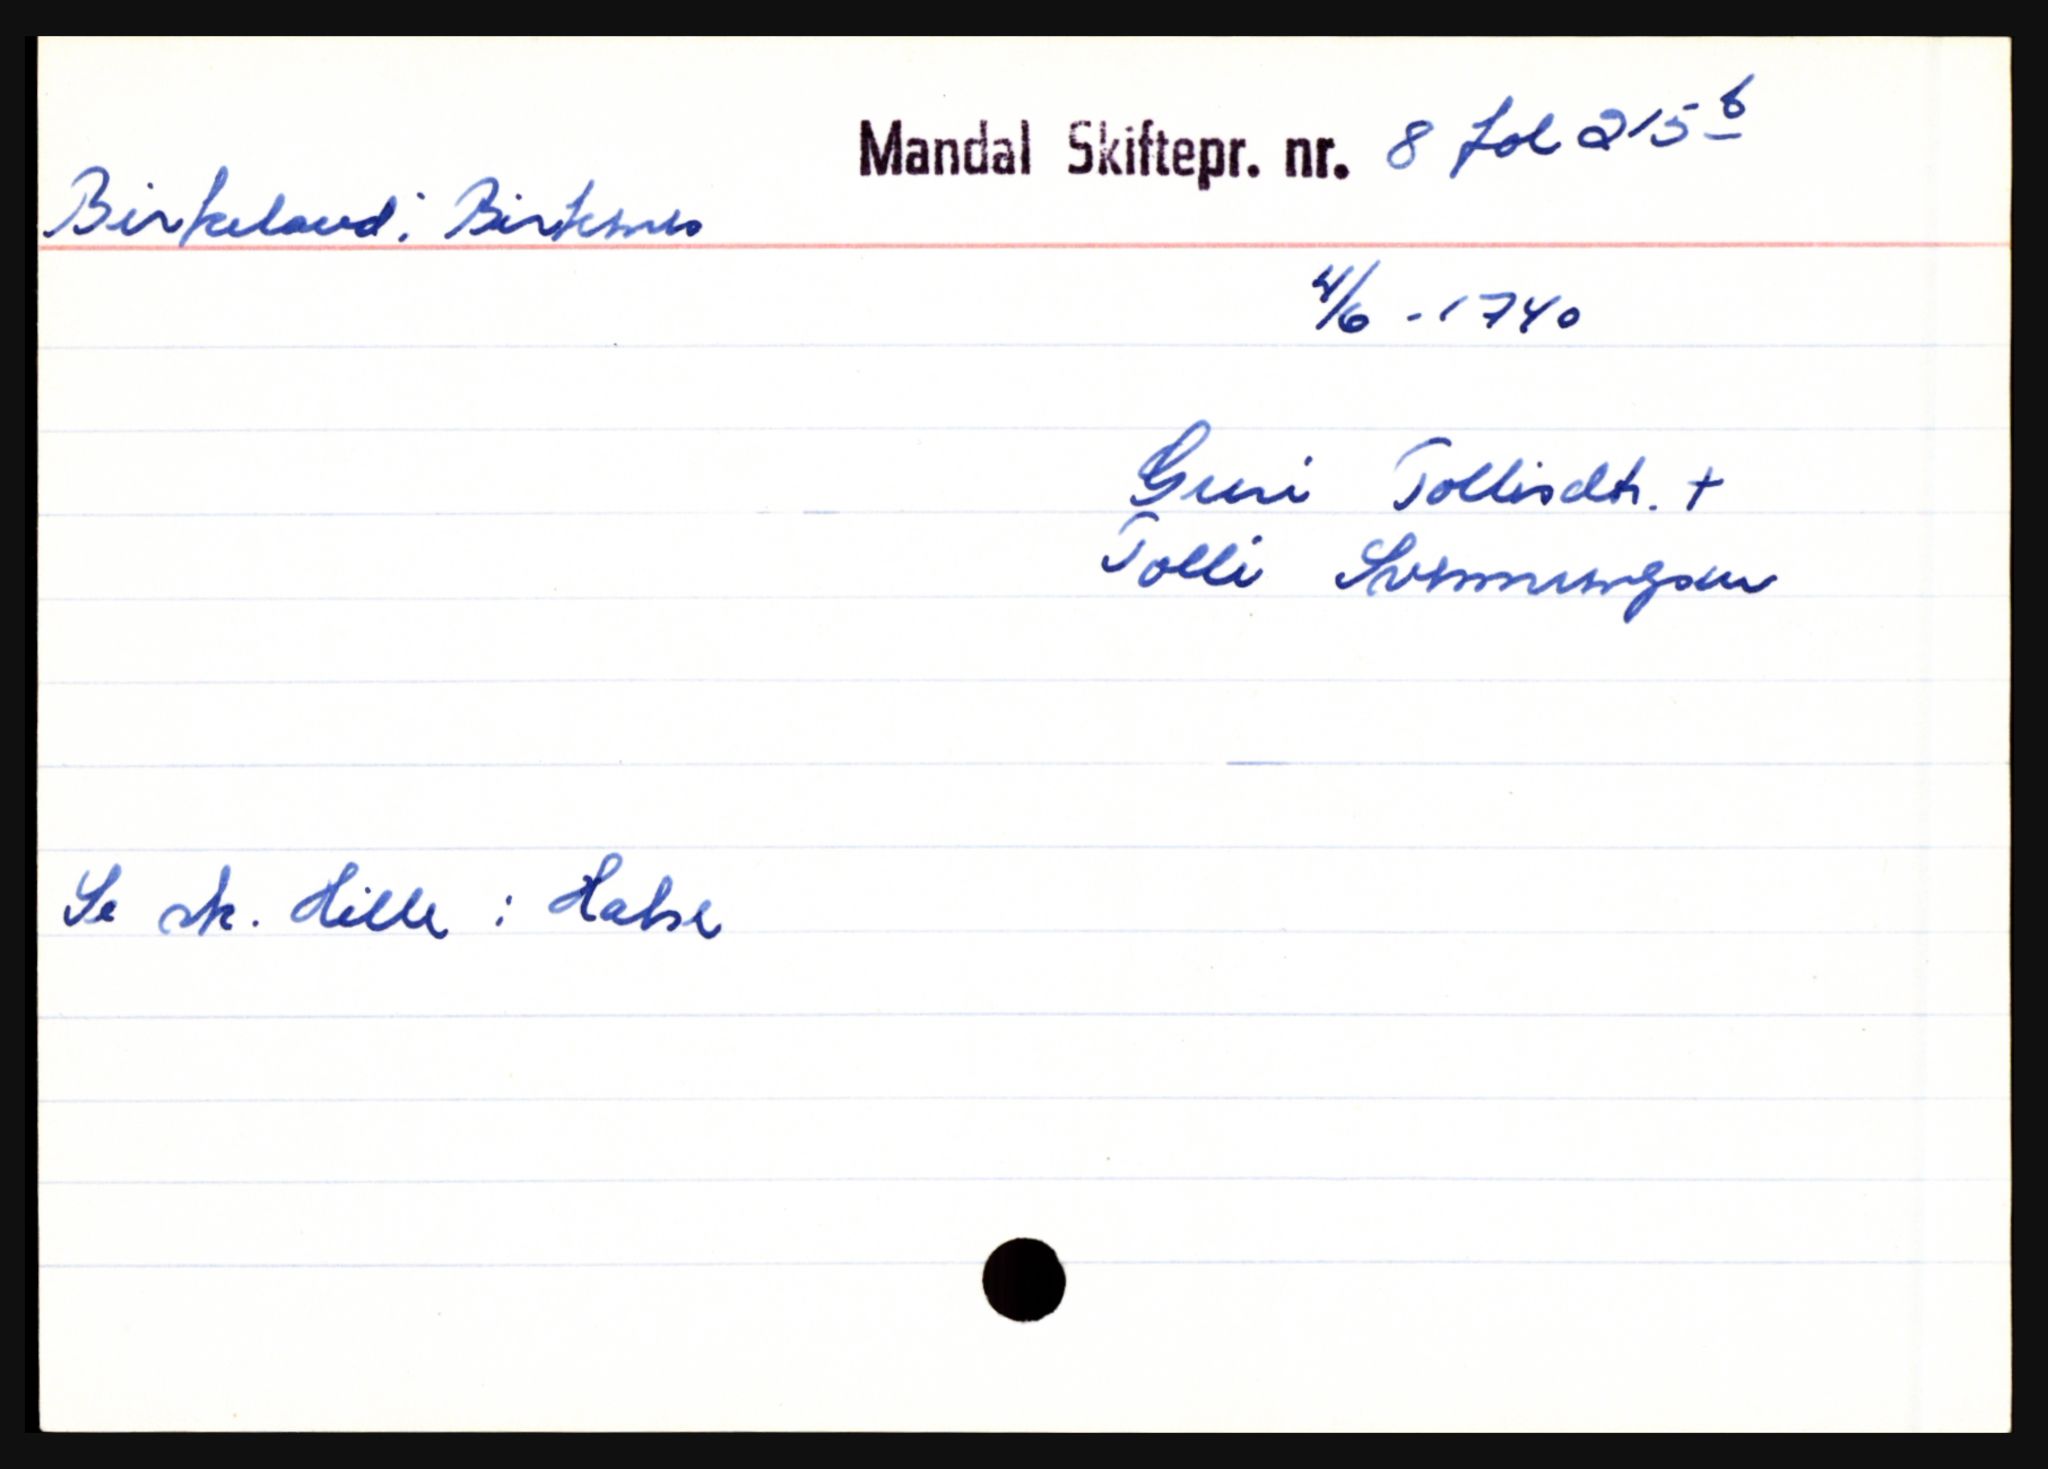 Mandal Skiftepr. nr. 8 fol 215 b
Birkeland: Birkenes
4/6 - 1740
Guri Tollisdtr. +
Tolli Svennungsen
Se sk. Hille : Halse